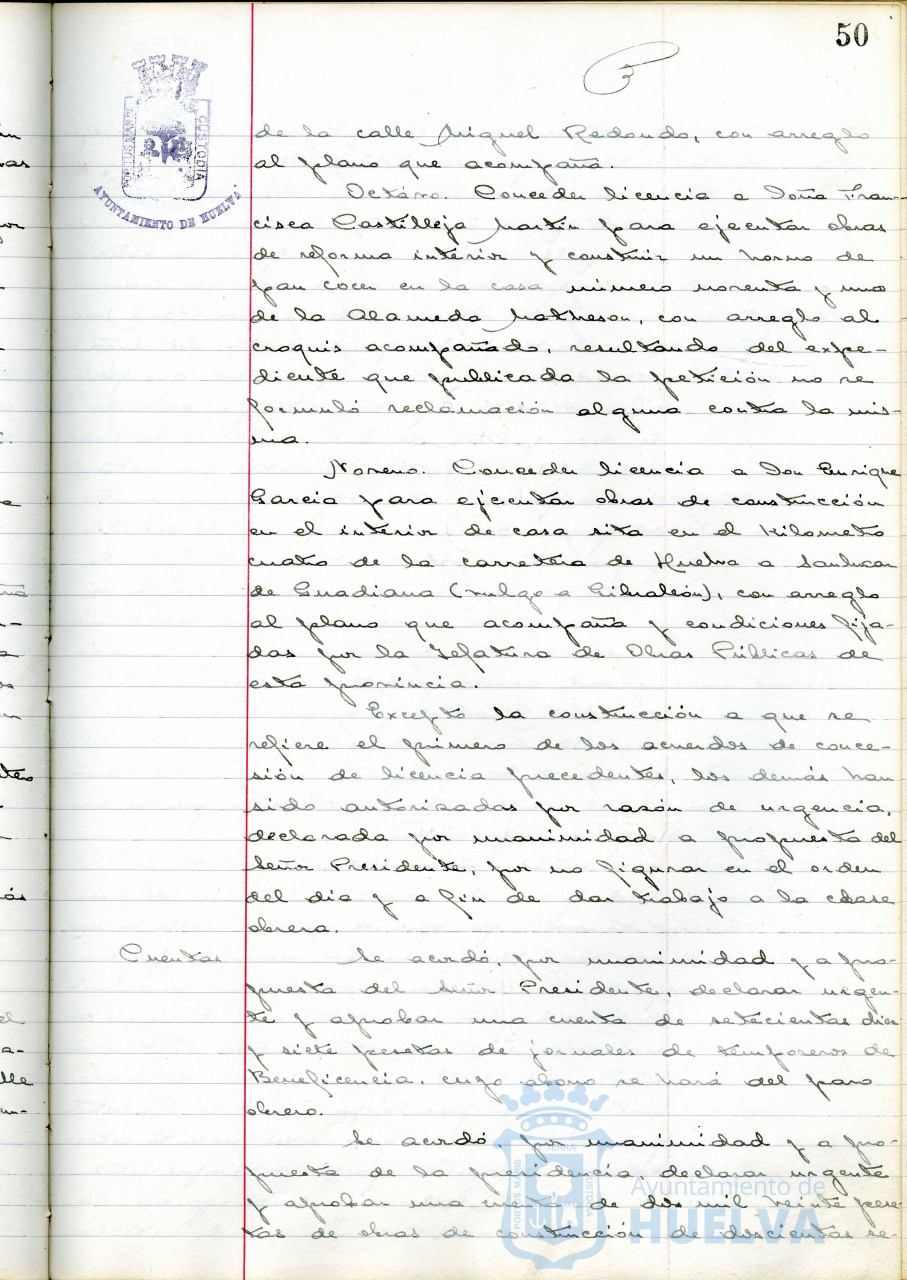 50
PORTUS MARIS
CUSTODIA
AYUNTAMIENTO DE HUELVA
de la calle Miguel Redondo, con arreglo
al plano que acompaña.
Octavo. Conceder licencia a Doña Fran-
cisca Castilleja Martín para ejecutar obras
de reforma interior y construir un horno de
pan cocer en la casa número noventa y uno
de la Alameda Matheson, con arreglo al
croquis acompañado, resultando del expe-
diente que publicada la petición no se
formuló reclamación alguna contra la mis-
ma.
Noveno. Conceder licencia a Don Enrique
García para ejecutar obras de construcción
en el interior de casa sita en el Kilometro
cuatro de la carretera de Huelva a Sanlucar
de Guadiana (vulgo a Gibraleón), con arreglo
al plano que acompaña y condiciones fija-
das por la Jefatura de Obras Públicas de
esta provincia.
Excepto la construcción a que se
refiere el primero de los acuerdos de conce-
sión de licencia precedentes, los demás han
sido autorizados por razón de urgencia,
declarada por unanimidad a propuesta del
Señor Presidente, por no figurar en el orden
del dia y a fin de dar trabajo a la clase
obrera.
Cuentas
Se acordó, por unanimidad y a pro-
puesta del Señor Presidente, declarar urgen-
te y aprobar una cuenta de setecientas diez
y siete pesetas de jornales de temporeros de
Beneficencia, cuyo abono se hará del paro
obrero.
Se acordó por unanimidad y a pro-
puesta de la presidencia declarar urgente
y aprobar una cuenta de dos mil veinte pese-
tas de obras de construcción de doscientas se-
Ayuntamiento de
HUELVA